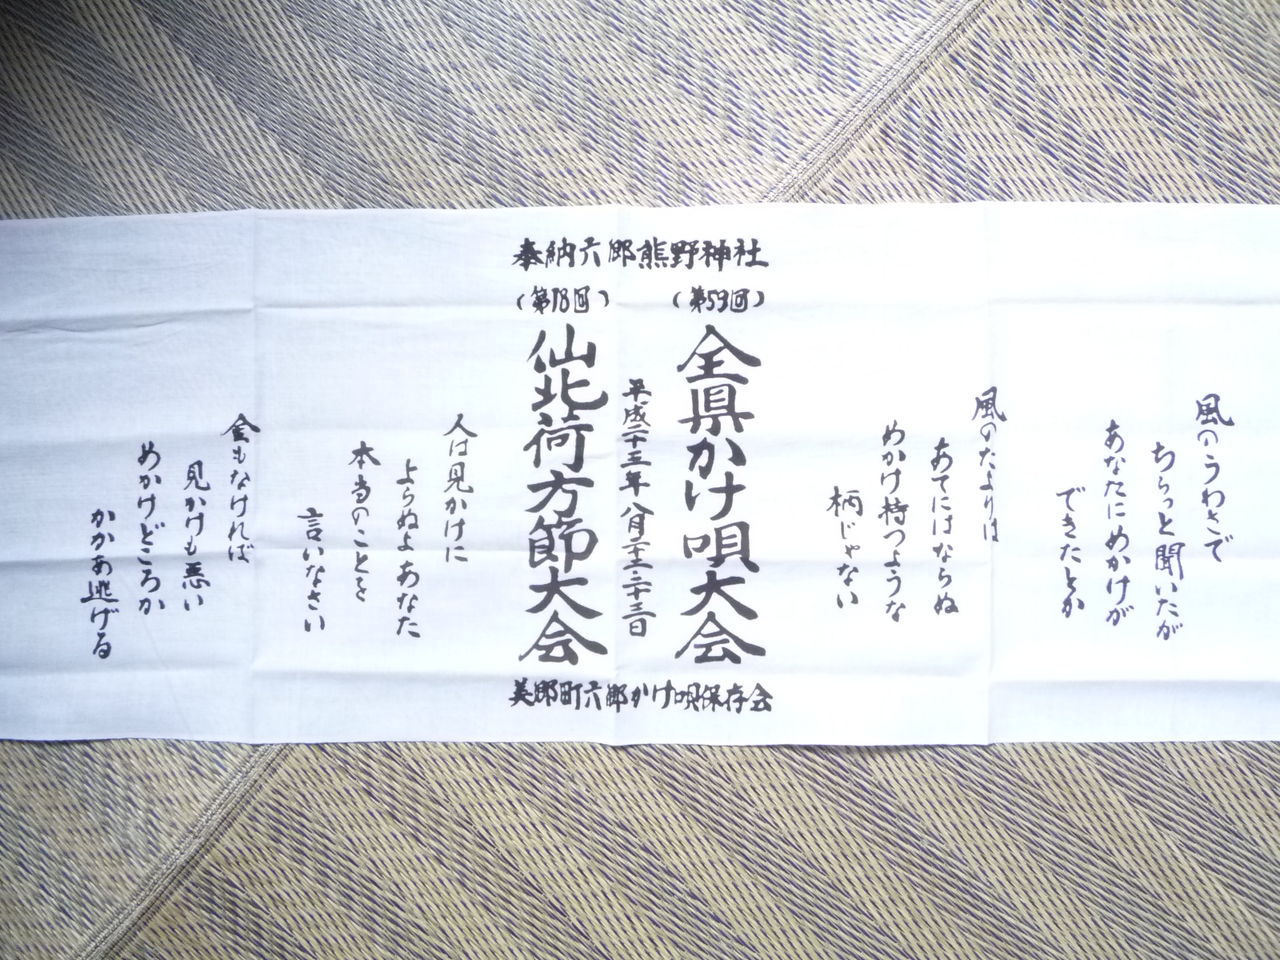 風のうわさで
ちらっと聞いたが
あなたにめかけが
できたとか
風のたよりは
あてにはならぬ
めかけ持つような
柄じゃない
奉納六郷熊野神社
(第59回)
全県かけ唄大会
平成二十三年八月二十二・二十三日
(第18回)
仙北荷方節大会
美郷町六郷かけ唄保存会
人は見かけに
よらぬよあなた
本当のことを
言いなさい
金もなければ
見かけも悪い
めかけどころか
かかあ逃げる